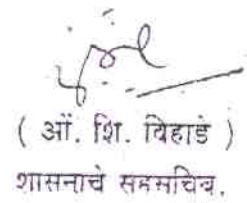 ( ओं. शि. विहाडे )
शासनाचे सहसचिव.